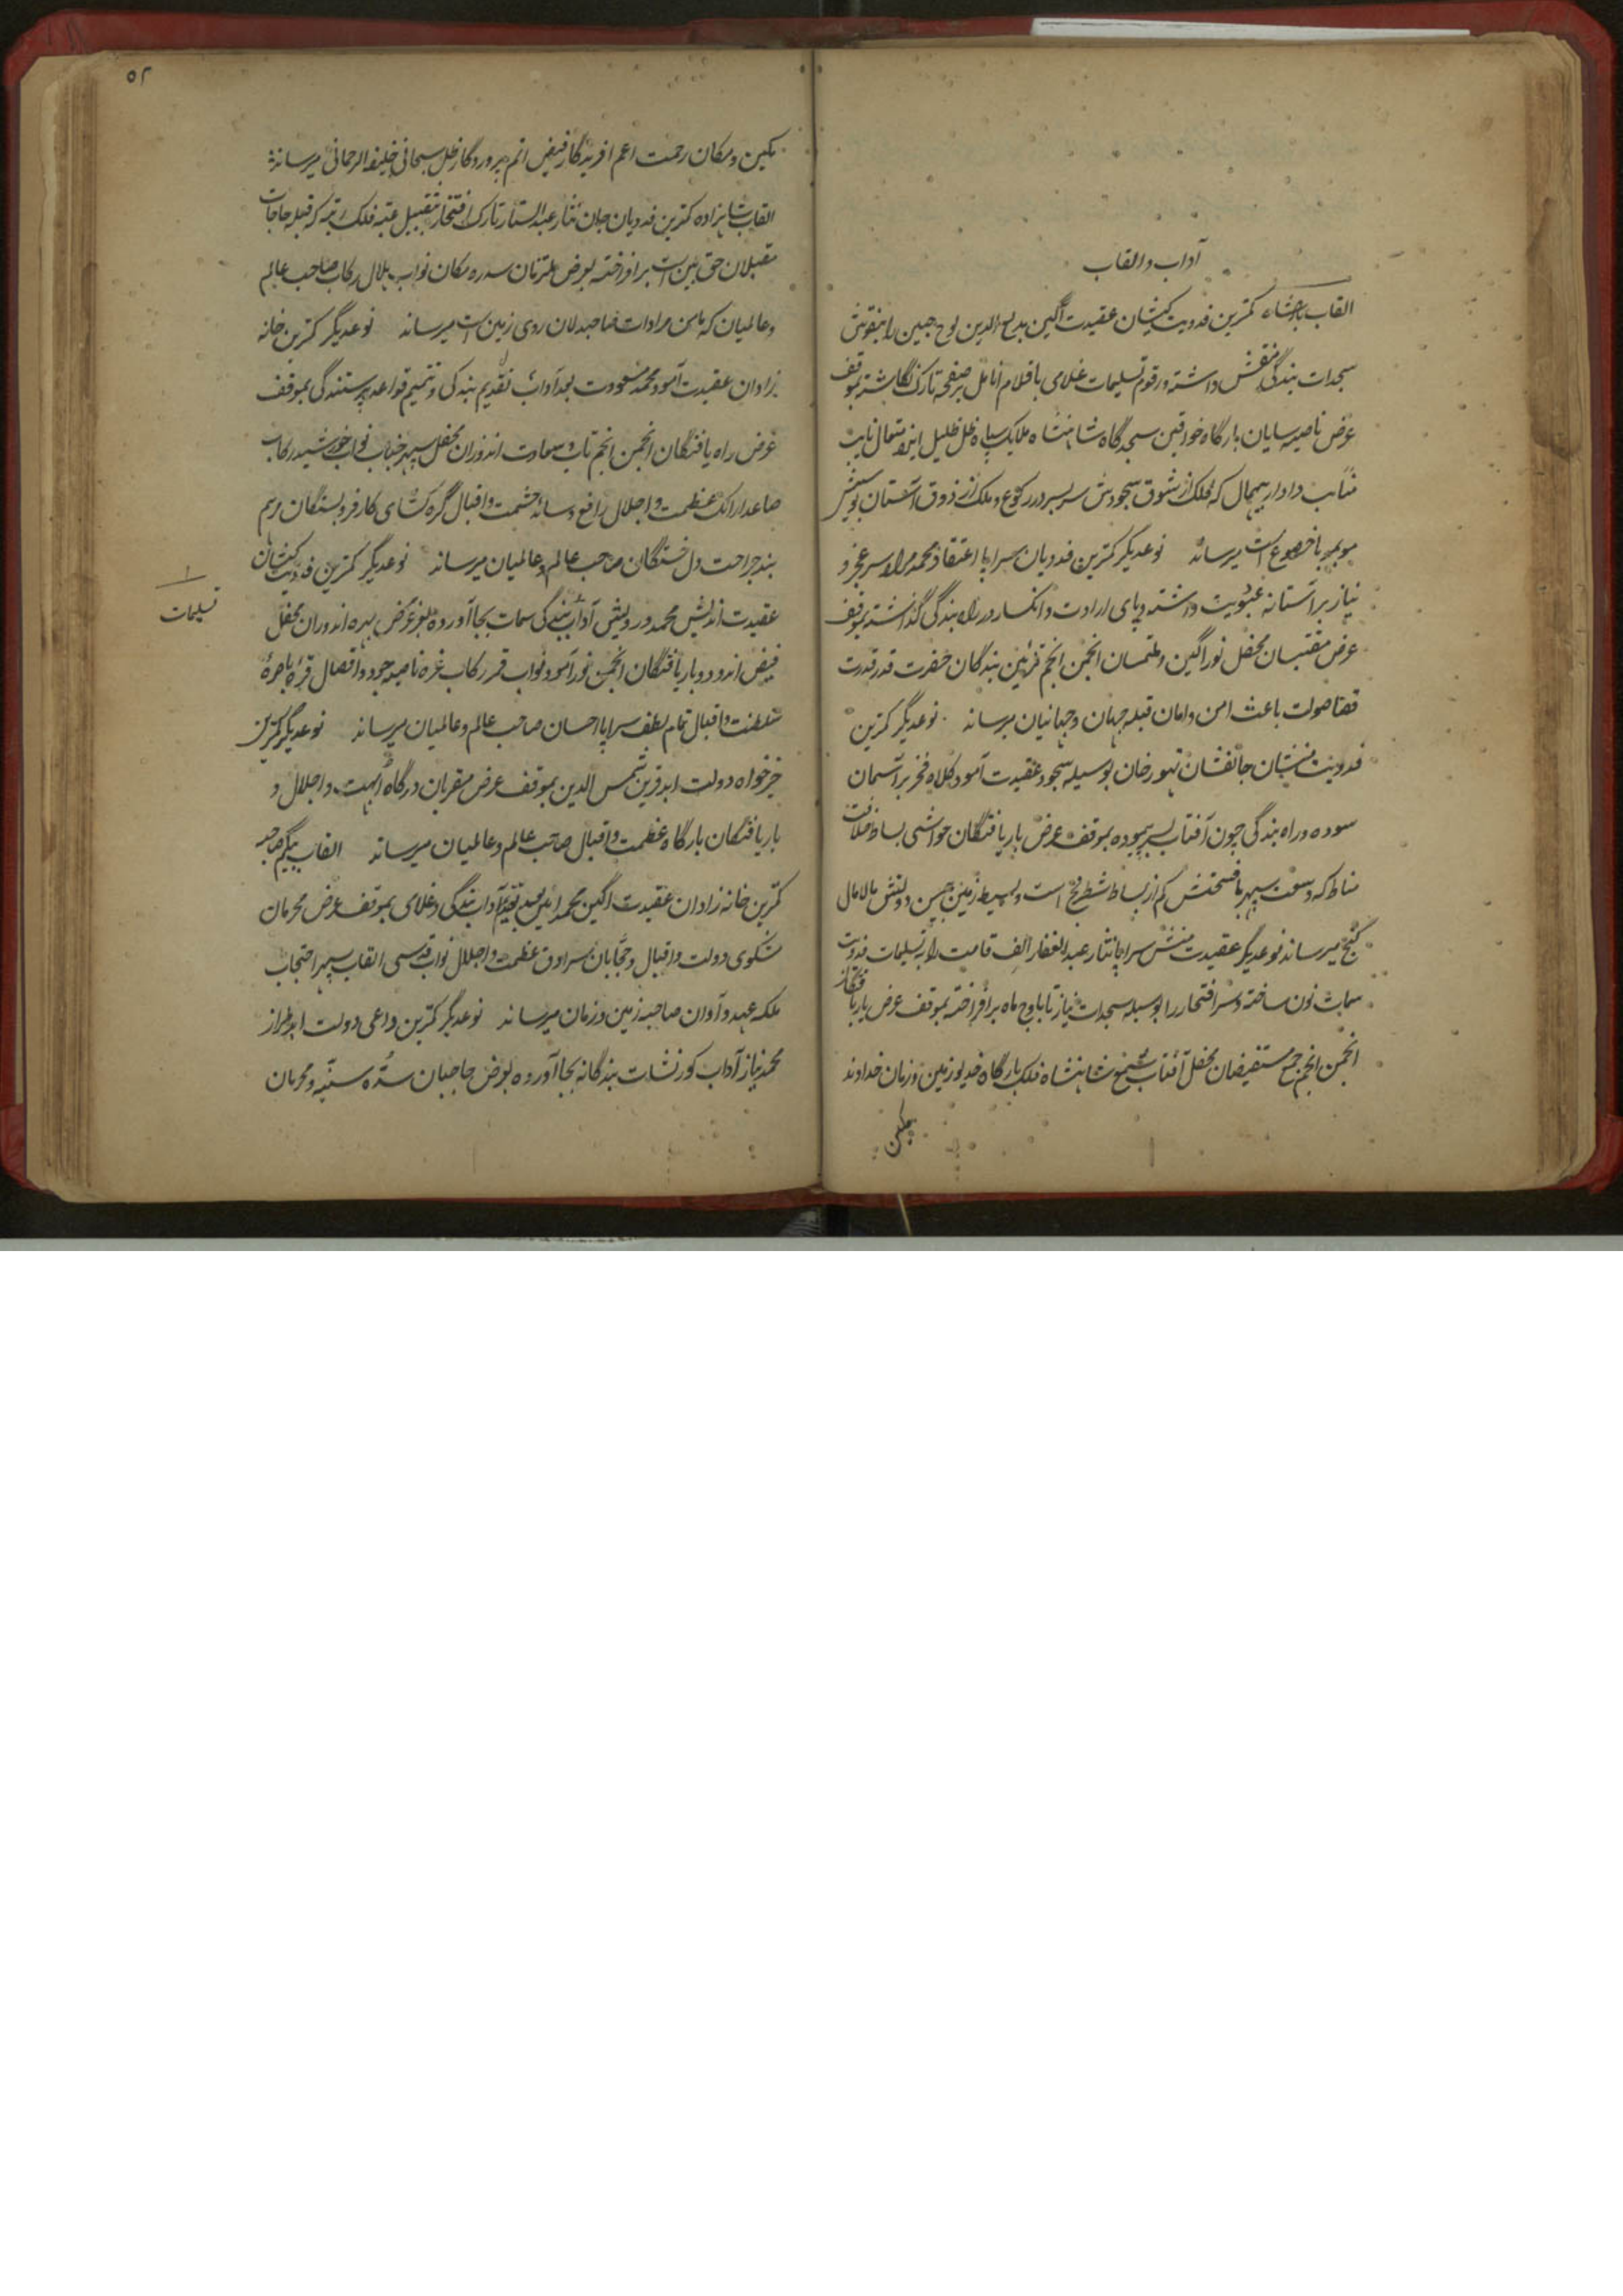 آداب و القاب
القاب بادشاه کمترین فدویت کیشان عقیدت آگین بدیع الدین لوح جبین را بنقوش
سجدات بندگی منقش داشته و رقوم تسلیمات غلامی باقلام انامل بر صفحه تارک نگاشته بموقف
عرض ناصیه سایان بارگاه خواقین سجده گاه شاهنشاه ملایک سپاه ظل ظلیل ایزد متعال نایب
مناب دادار بیهمال که فلک از شوق سجودش سر بسر در رکوع و ملک از ذوق آستان بوسیش
با خضوع است میرساند نوعدیگر کمترین فدویان سراپا اعتقاد محمد مراد سر عجز و
نیاز بر آستانه عبودیت داشته و پای ارادت و انکسار در راه بندگی گذاشته بموقف
عرض مقتبسان محفل نور آگین و ملتمسان انجمن انجم تزئین بندگان حضرت قدر قدرت
قضا صولت باعث امن و امان قبله جهان و جهانیان میرساند نوعدیگر کمترین
فدویت منشان جانفشان تهور خان بوسیله سجود عقیدت آمود کلاه فخر بر آسمان
سوده و راه بندگی چون آفتاب بسر پیموده بموقف عرض باریافتگان حواشی بساط خلافت
مناط که وسعت سپهر با فسحتش کم از بساط شطرنج است و بسیط زمین از دولتش مالامال
گنج میرساند نوعدیگر عقیدت منش سراپا نثار عبد الغفار الف قامت را به تسلیمات فدویت
سمات نون ساخته و سر افتخار را بوسیله سجدات نیاز تا باوج ماه برافراخته بموقف عرض باریافتگان
انجمن انجم جمع مستفیضان محفل آفتاب شمع شاهنشاه فلک بارگاه خدیو زمین و زمان خداوند
مکین
۵۲
مکین و مکان رحمت اعم آفریدگار فیض اتم پروردگار ظل سبحانی خلیفه الرحمانی میرساند
القاب شاهزاده کمترین فدویان جان نثار عبد الستار تارک افتخار بتقبیل عتبه فلک رتبه که قبله حاجات
مقبلان حق بین است برافراخته بعرض ملتزمان سدره مکان نواب هلال رکاب صاحب عالم
و عالمیان که مامن مرادات صاحبدلان روی زمین است میرساند نوعدیگر کمترین خانه
زادان عقیدت آمود محمد مسعود بعد آداب تقدیم بندگی و تتمیم قواعد پرستندگی بموقف
عرض راه یافتگان انجمن انجم تاب و سعادت اندوزان محفل سپهر جناب نواب خورشید رکاب
صاعد ارائک عظمت و اجلال رافع وسائد حشمت و اقبال گره کشای کار فروبستگان مرهم
بند جراحت دل خستگان صاحب عالم و عالمیان میرساند نوعدیگر کمترین فدویت کیشان
عقیدت اندیش محمد درویش آداب بندگی سمات بجا آورده بعرض بهره اندوزان محفل
فیض اندود و باریافتگان انجمن نور آمود نواب قمر رکاب غره ناصیه جود و افضال قره باصره
سلطنت و اقبال تمام لطف سراپا احسان صاحب عالم و عالمیان میرساند نوعدیگر کمترین
خیرخواه دولت ابد قرین شمس الدین بموقف عرض مقربان درگاه ابهت و اجلال و
باریافتگان بارگاه عظمت و اقبال صاحب عالم و عالمیان میرساند القاب بیگم صاحبه
کمترین خانه زادان عقیدت آگین محمد امین بعد تقدیم آداب بندگی و غلامی بموقف عرض محرمان
مشکوی دولت و اقبال و حجابان سرادق عظمت و اجلال نواب قدسی القاب سپهر احتجاب
ملکه عهد و آوان صاحبه زمین و زمان میرساند نوعدیگر کمترین داعی دولت ابد طراز
محمد نیاز آداب کورنشات بندگانه بجا آورده بعرض حاجبان سده سنیه و محرمان
تسلیمات